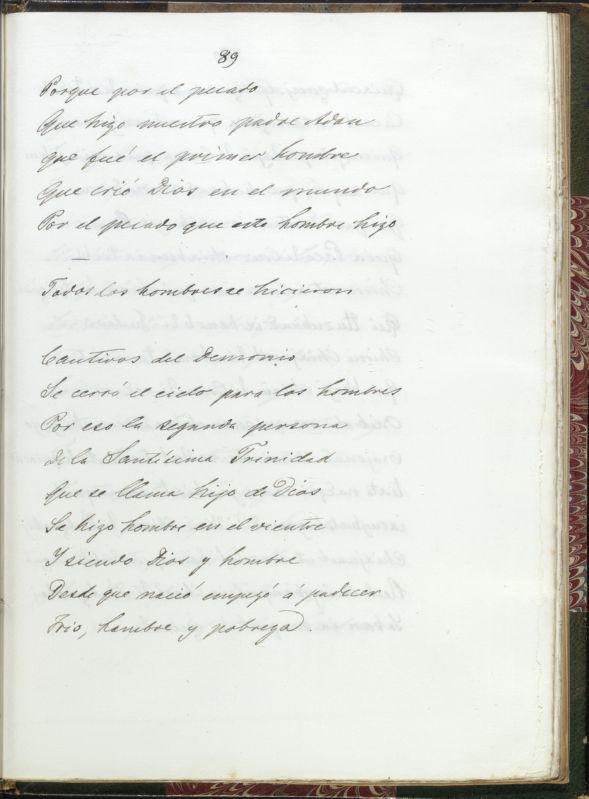 89
Porque por el pecado
Que hizo nuestro padre Adan
que fué el primer hombre
Que crió Dios en el mundo
Por el pecado que este hombre hizo
Todos los hombres se hicieron
Cautivos del Demonio
Se cerró el cielo para los hombres
Por eso la segunda persona
de la Santísima Trinidad
Que se llama hijo de Dios
Se hizo hombre en el vientre
Y siendo Dios y hombre
Desde que nació empezó á padecer
Frio, hambre y pobreza.